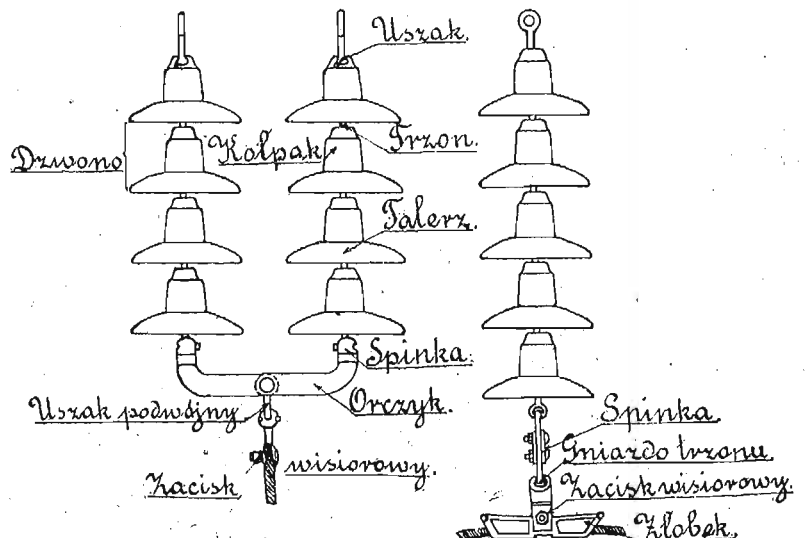 Uszak.
Trzon.
Kołpak
Dzwono
Talerz.
Spinka.
Orczyk.
Uszak podwójny
Zacisk wisiorowy.
Spinka.
Gniazdo trzonu.
Zacisk wisiorowy.
Żłobek.